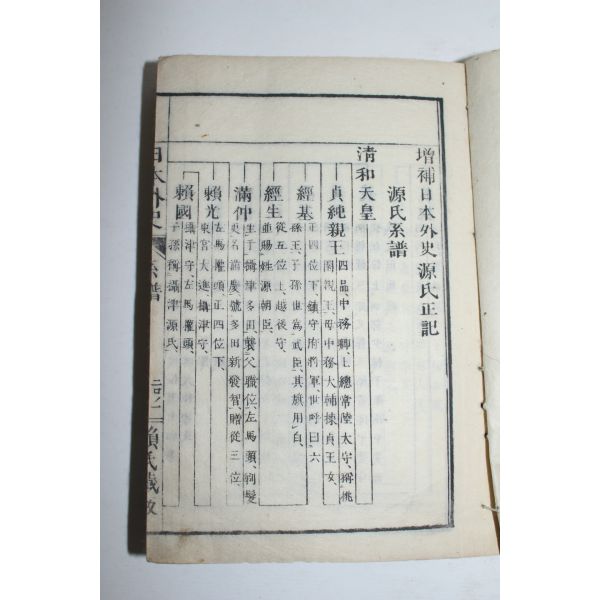 增補日本外史源氏正記
源氏系譜
清和天皇
貞純親王
四品中務卿、上總常陸太守、稱桃
園親王、母中務大輔棟貞王女、
經基
正四位下、鎮守府將軍、世呼曰六
孫王、子孫世爲武臣、其旗用白、
經生
從五位上、越後守、
並賜姓源朝臣、
滿仲
生于攝津多田、襲父職位、左馬頭、剃髮
更名滿慶、號多田新發智、贈從三位、
賴光
左馬權頭、正四位下、
東宮大進、攝津守、
賴國
攝津守、左馬權頭、
子孫稱攝津源氏、
日本外史
系譜
賴氏藏